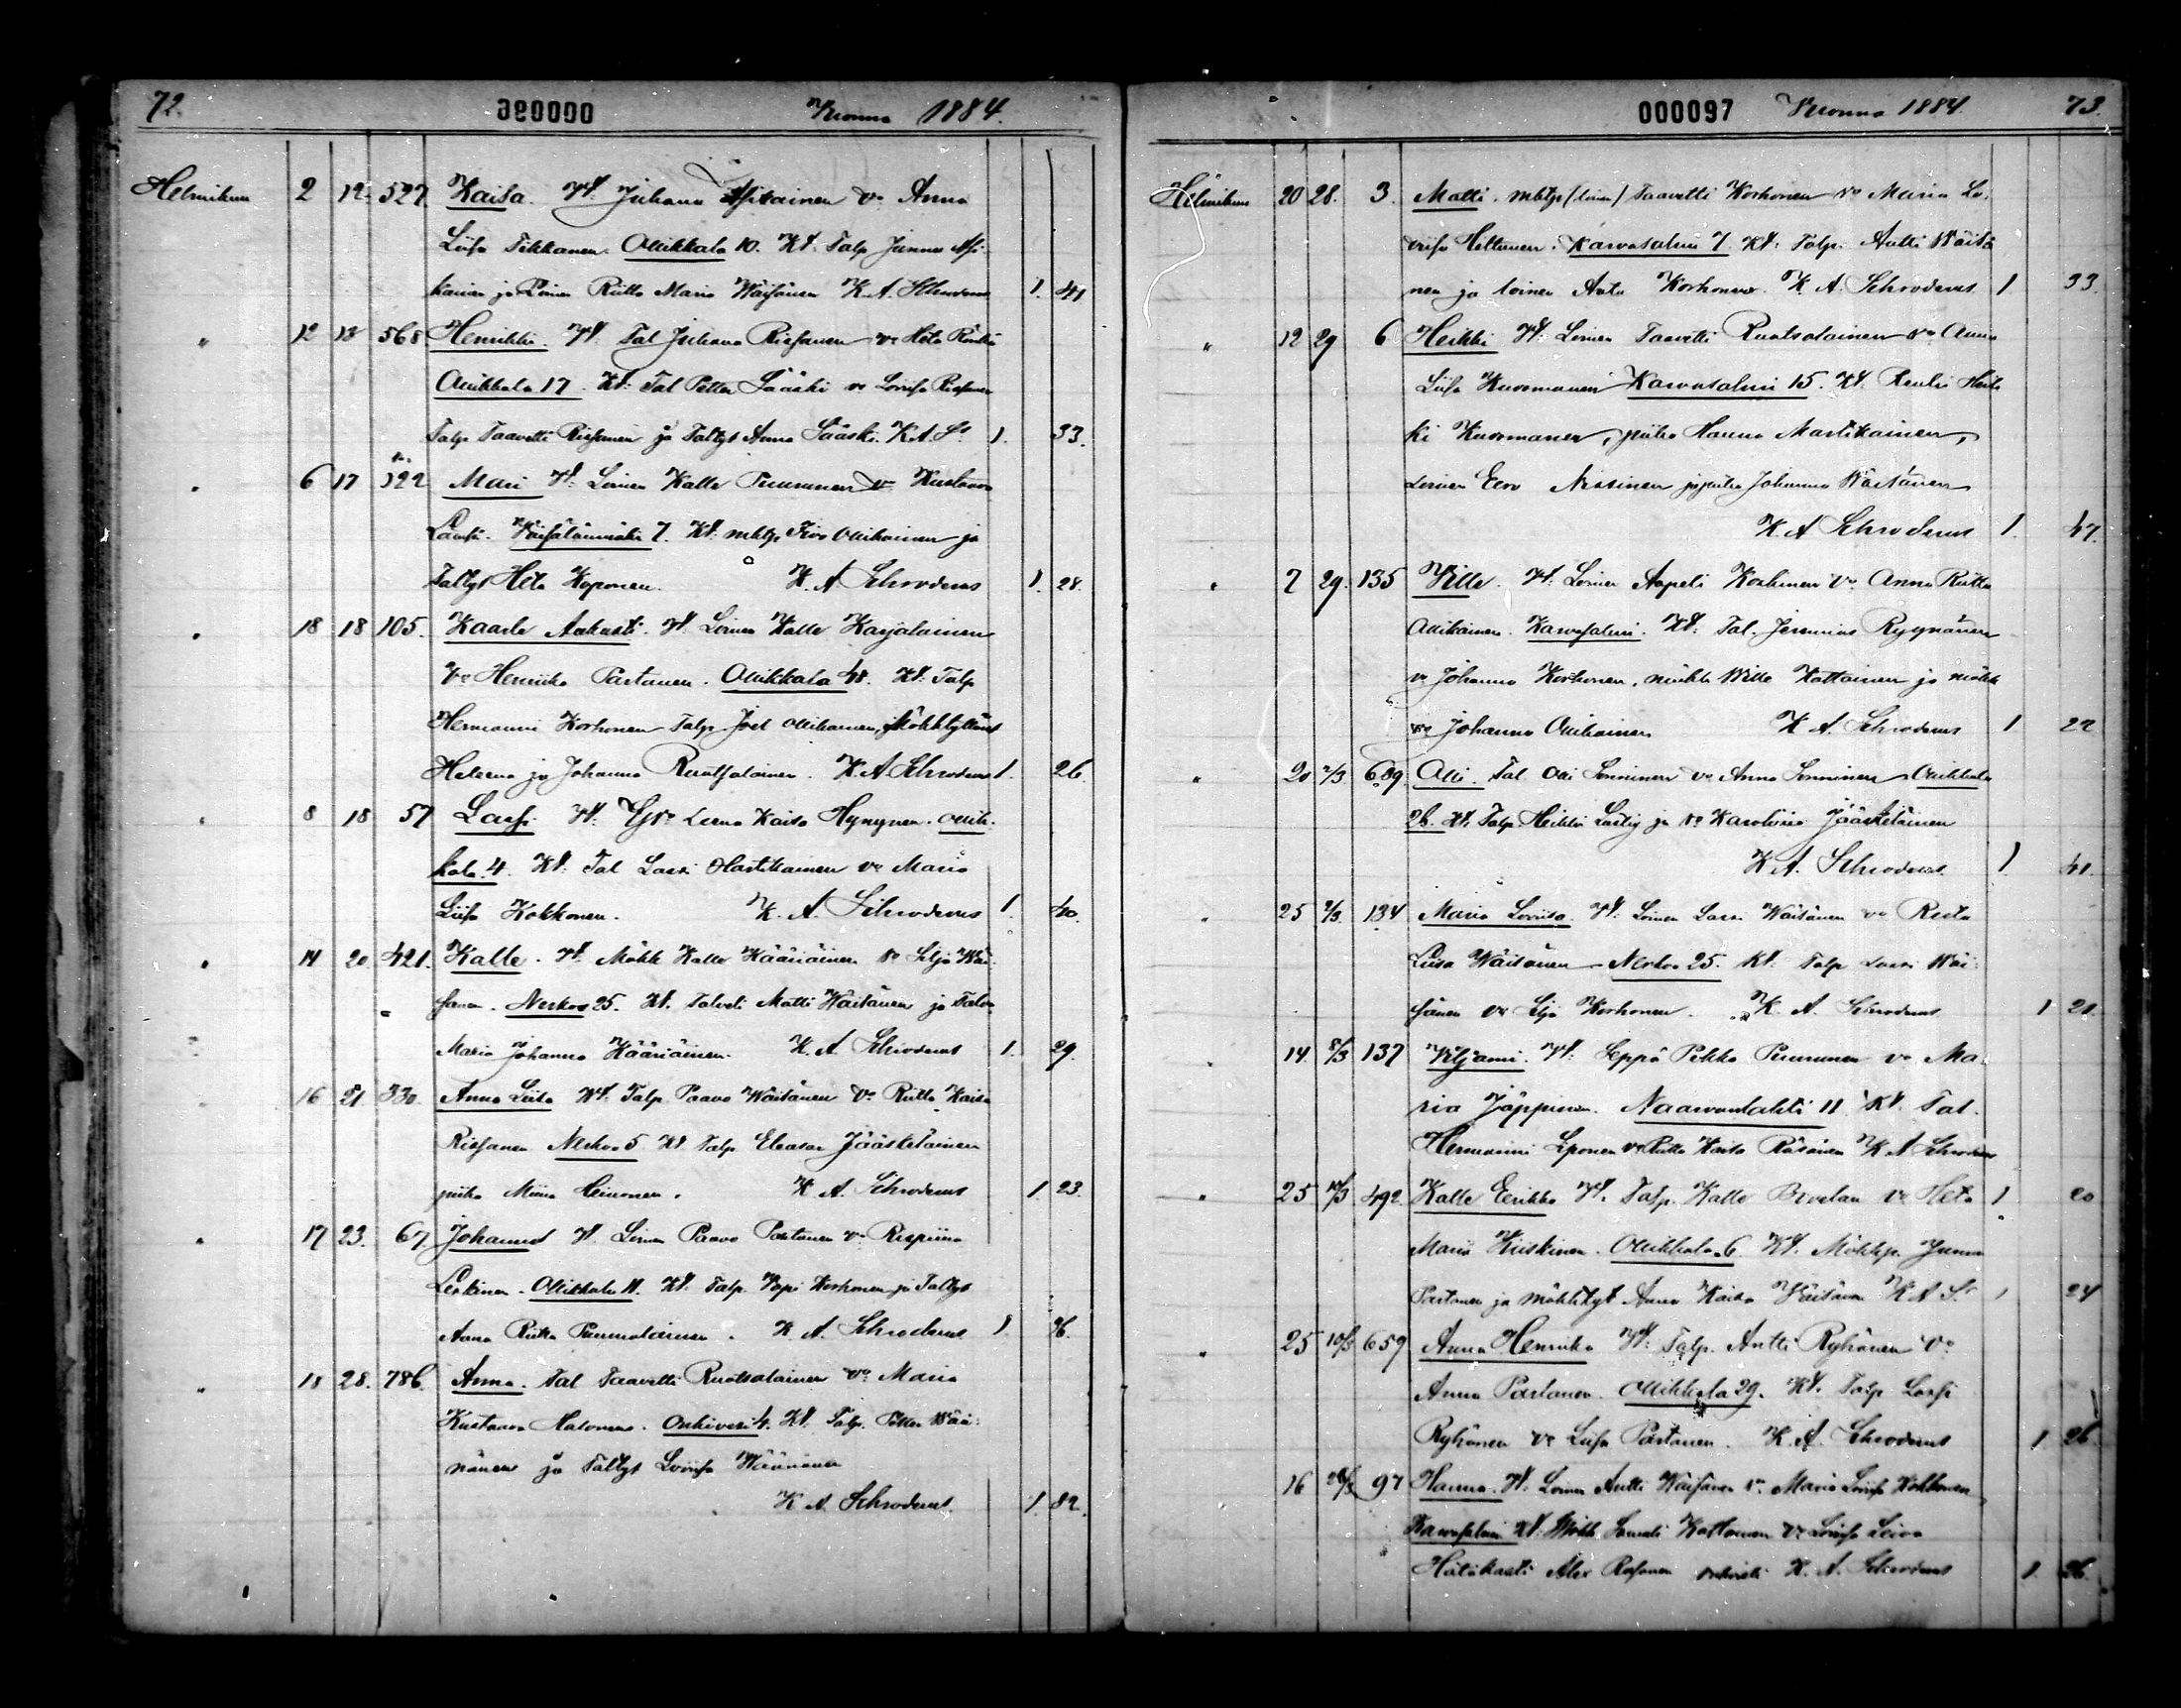 72. 000096 Vuonna 1884.
Helmikuu 2 12 527 Kaisa. Vt. Juhana Asikainen Vo Anna
Liisa Tikkanen. Ollikkala 10. Kt. Talp Junnu Asi-
kainen ja Loinen Riitta Maria Wäisänen K. A. Schroderus 1. 41
" 12 13 568 Henrikki. Vt. Tal Juhana Rissanen Vo Heta
Ollikkala 17. Kt. Tal Petter Sääski vo Lovisa Rissanen
Talp Taavetti Rissanen ja Taltyt Anna Sääski. K. A. S. 1. 33.
" 6 17 522 Mari Vt. Loinen Kalle Puurunen Vo Kustaava
7. Kt. mktp Iivo Ollikainen ja
Taltyt Heta Koponen. K. A Schroderus 1. 28.
" 18 18 105. Kaarle Aukusti. Vt. Loinen Kalle Karjalainen
Vo Henriika Partanen. Ollikkala 48. Kt. Talp
Hermanni Korhonen Talp. Joel Ollikainen,
Helena ja Johanna Ruutsalainen. K. A Schroderus 1. 26
" 8 18 57 Lassi Vt. Leena Kaisa Hynynen. Ollik-
kala 4. Kt. Tal Lassi Hartikainen Vo Maria
Liisa Kokkonen. K. A. Schroderus 1. 40.
" 14 20 421. Kalle. Vt. Mökk Kalle Kääriäinen Vo Silja Wäi-
sänen. Nerkoo 25. Kt. Talveli Matti Wäisänen ja
Maria Johanna Kääriäinen. K. A. Schroderus 1. 29.
16 21 330. Anna Liisa Vt. Talp Paavo Wäisänen Vo Riitta Kaisa
Rissanen Nerkoo 5 Kt Talp Eleasar Jääskeläinen
piika Miina Heinonen. K A. Schroderus 1. 23.
" 17 23. 67. Johannes Vt. Loinen Paavo Partanen Vo
Leskinen. Ollikkala 11. Kt. Talp. Korhonen ja Taltyt
Anna Riitta. K. A. Schroderus 1. 26.
" 18 28. 786. Anna. Tal Taavetti Ruotsalainen Vo Maria
Kustaava Halonen. Onkivesi 4. Kt. Talp. Petter Wää-
nänen ja Taltyt Loviisa Wäänänen
K A. Schroderus 1. 82.
000097 Vuonna 1884. 73.
Helmikuu 20 28. 3. Matti. mktp (loinen) Taavetti Korhonen Vo Maria Lo-
viisa Hiltunen. Karvasalmi 7. Kt: Talp. Antti Wäisä-
nen ja loinen Korhonen. K. A. Schroderus 1 33.
" 12 29 6 Heikki Vt: Loinen Taavetti Ruotsalainen Vo Anna
Liisa Kuosmanen Karvasalmi 15. Kt. Renki Heik-
ki Kuosmanen, piika Hanna Martikainen,
Loinen Eero Nissinen ja piika Johanna Wäisänen
K. A Schroderus 1. 47.
" 7 29. 135 Ville. Vt. Loinen Aapeli Vo Anna Riitta
Ollikainen. Karvasalmi. Kt: Tal. Jeremias Ryynänen
Vo Johanna Korhonen, mökk Wille Kattainen ja mökk
vo Johanna Ollikainen K A. Schroderus 1 22
" 20 2/3 689. Olli. Tal Olli Sonninen Vo Anna Sonninen Ollikkala
26. Kt. Talp. Heikki Lustig ja Vo Karoliina Jääskeläinen
K A. Schroderus 1. 41.
" 25 2/3. 134 Maria Loviisa. Vt. Loinen Lassi Wäisänen Vo Riita
Liisa Wäisänen Nerkoo 25. Kt. Talp Lassi Wäi-
sänen Vo Silja Korhonen. K. A. Schroderus 1 21
" 14. 8/3 137 Viljami. Vt. Seppä Pekka Puurunen vo Ma-
ria Jäppinen. Naarvanlahti 11 Kt. Tal.
Hermanni Eponen Vo Riitta Kaisa Räsänen K A Schroderus
" 25 10/3 492. Kalle Eerikki Vt. Talp. Kalle Bovelan Vo Heta 1 20
Maria Kiiskinen. Ollikkala 6 Kt. Mökkp. Junnu
Partanen ja mökktyt Anna Kaisa Wäisänen K A S. 1 24
" 25 10/3 659 Anna Henriika Vt: Talp. Antti Ryhänen Vo
Anna Partanen. Ollikkala 29. Kt. Talp Lassi
Ryhänen Vo Liisa Partanen. K. A. Schroderus 1 26.
16 97 Hanna. Vt. Loinen Antti Wäisänen Vo Maria Loviisa Kokkonen
Karvasalmi Kt. Mökk Samuli Kattainen Vo Loviisa
Hätäkasti Alex Rissanen K. A. Schroderus 1. 26.